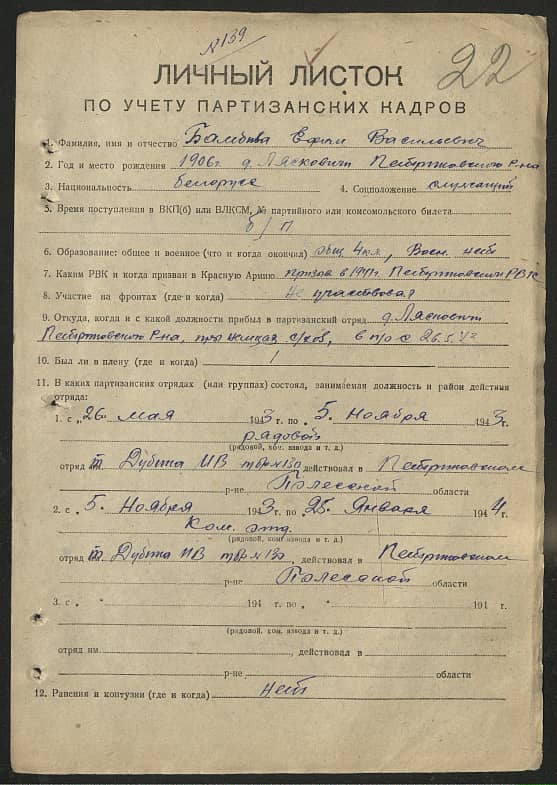 №139
22
ЛИЧНЫЙ ЛИСТОК
ПО УЧЕТУ ПАРТИЗАНСКИХ КАДРОВ
1. Фамилия, имя и отчество Ефим Васильевич
2. Год и место рождения 1906г д. Лясковичи Петриковского р-на
3. Национальность белорус 4. Соцположение служащий
5. Время поступления в ВКП(б) или ВЛКСМ, № партийного или комсомольского билета
б/п
6. Образование: общее и военное (что и когда окончил) общ 4кл, Воен. нет
7. Каким РВК и когда призван в Красную Армию призван в 1941г. РВК
8. Участие на фронтах (где и когда) Не участвовал
9. Откуда, когда и с какой должности прибыл в партизанский отряд д. Ляскович
Р-на, в п/о с 26.5.43
10. Был ли в плену (где и когда) /
11. В каких партизанских отрядах (или группах) состоял, занимаемая должность и район действия
отряда:
1. с „26 мая 1943 г. по „5 Ноября 1943 г.
рядовой
(рядовой, ком. взвода и т. д.)
отряд действовал в
р-не Полесской области
2. с „5 Ноября 1943 г. по „25 Января 1944 г.
Ком. отд.
(рядовой, ком. взвода и т. д.)
отряд , действовал в
р-не Полесской области
3. с „ “ 194 г. по „ “ 194 г.
(рядовой, ком. взвода и т. д.)
отряд им. , действовал в
р-не области
12. Ранения и контузии (где и когда) нет